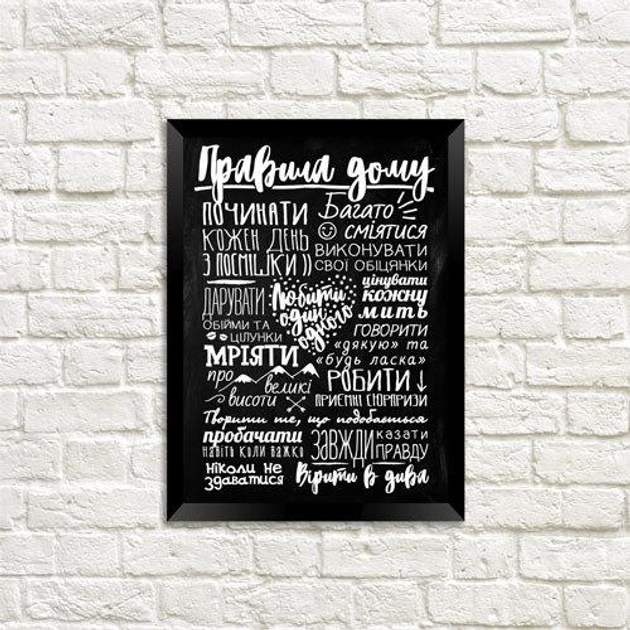 Правила дому
ПОЧИНАТИ
КОЖЕН ДЕНЬ
З ПОСМІШКИ ))
Багато
☺ сміятися
ВИКОНУВАТИ
СВОЇ ОБІЦЯНКИ
ДАРУВАТИ
ОБІЙМИ ТА
ЦІЛУНКИ
Любити
один
одного
цінувати
кожну
мить
ГОВОРИТИ
«дякую» та
«будь ласка»
МРІЯТИ
про
великі
висоти
РОБИТИ ↓
ПРИЄМНІ СЮРПРИЗИ
Творити те, що подобається
пробачати
навіть коли важко
ЗАВЖДИ
казати
ПРАВДУ
Ніколи не
здаватися
Вірити в дива